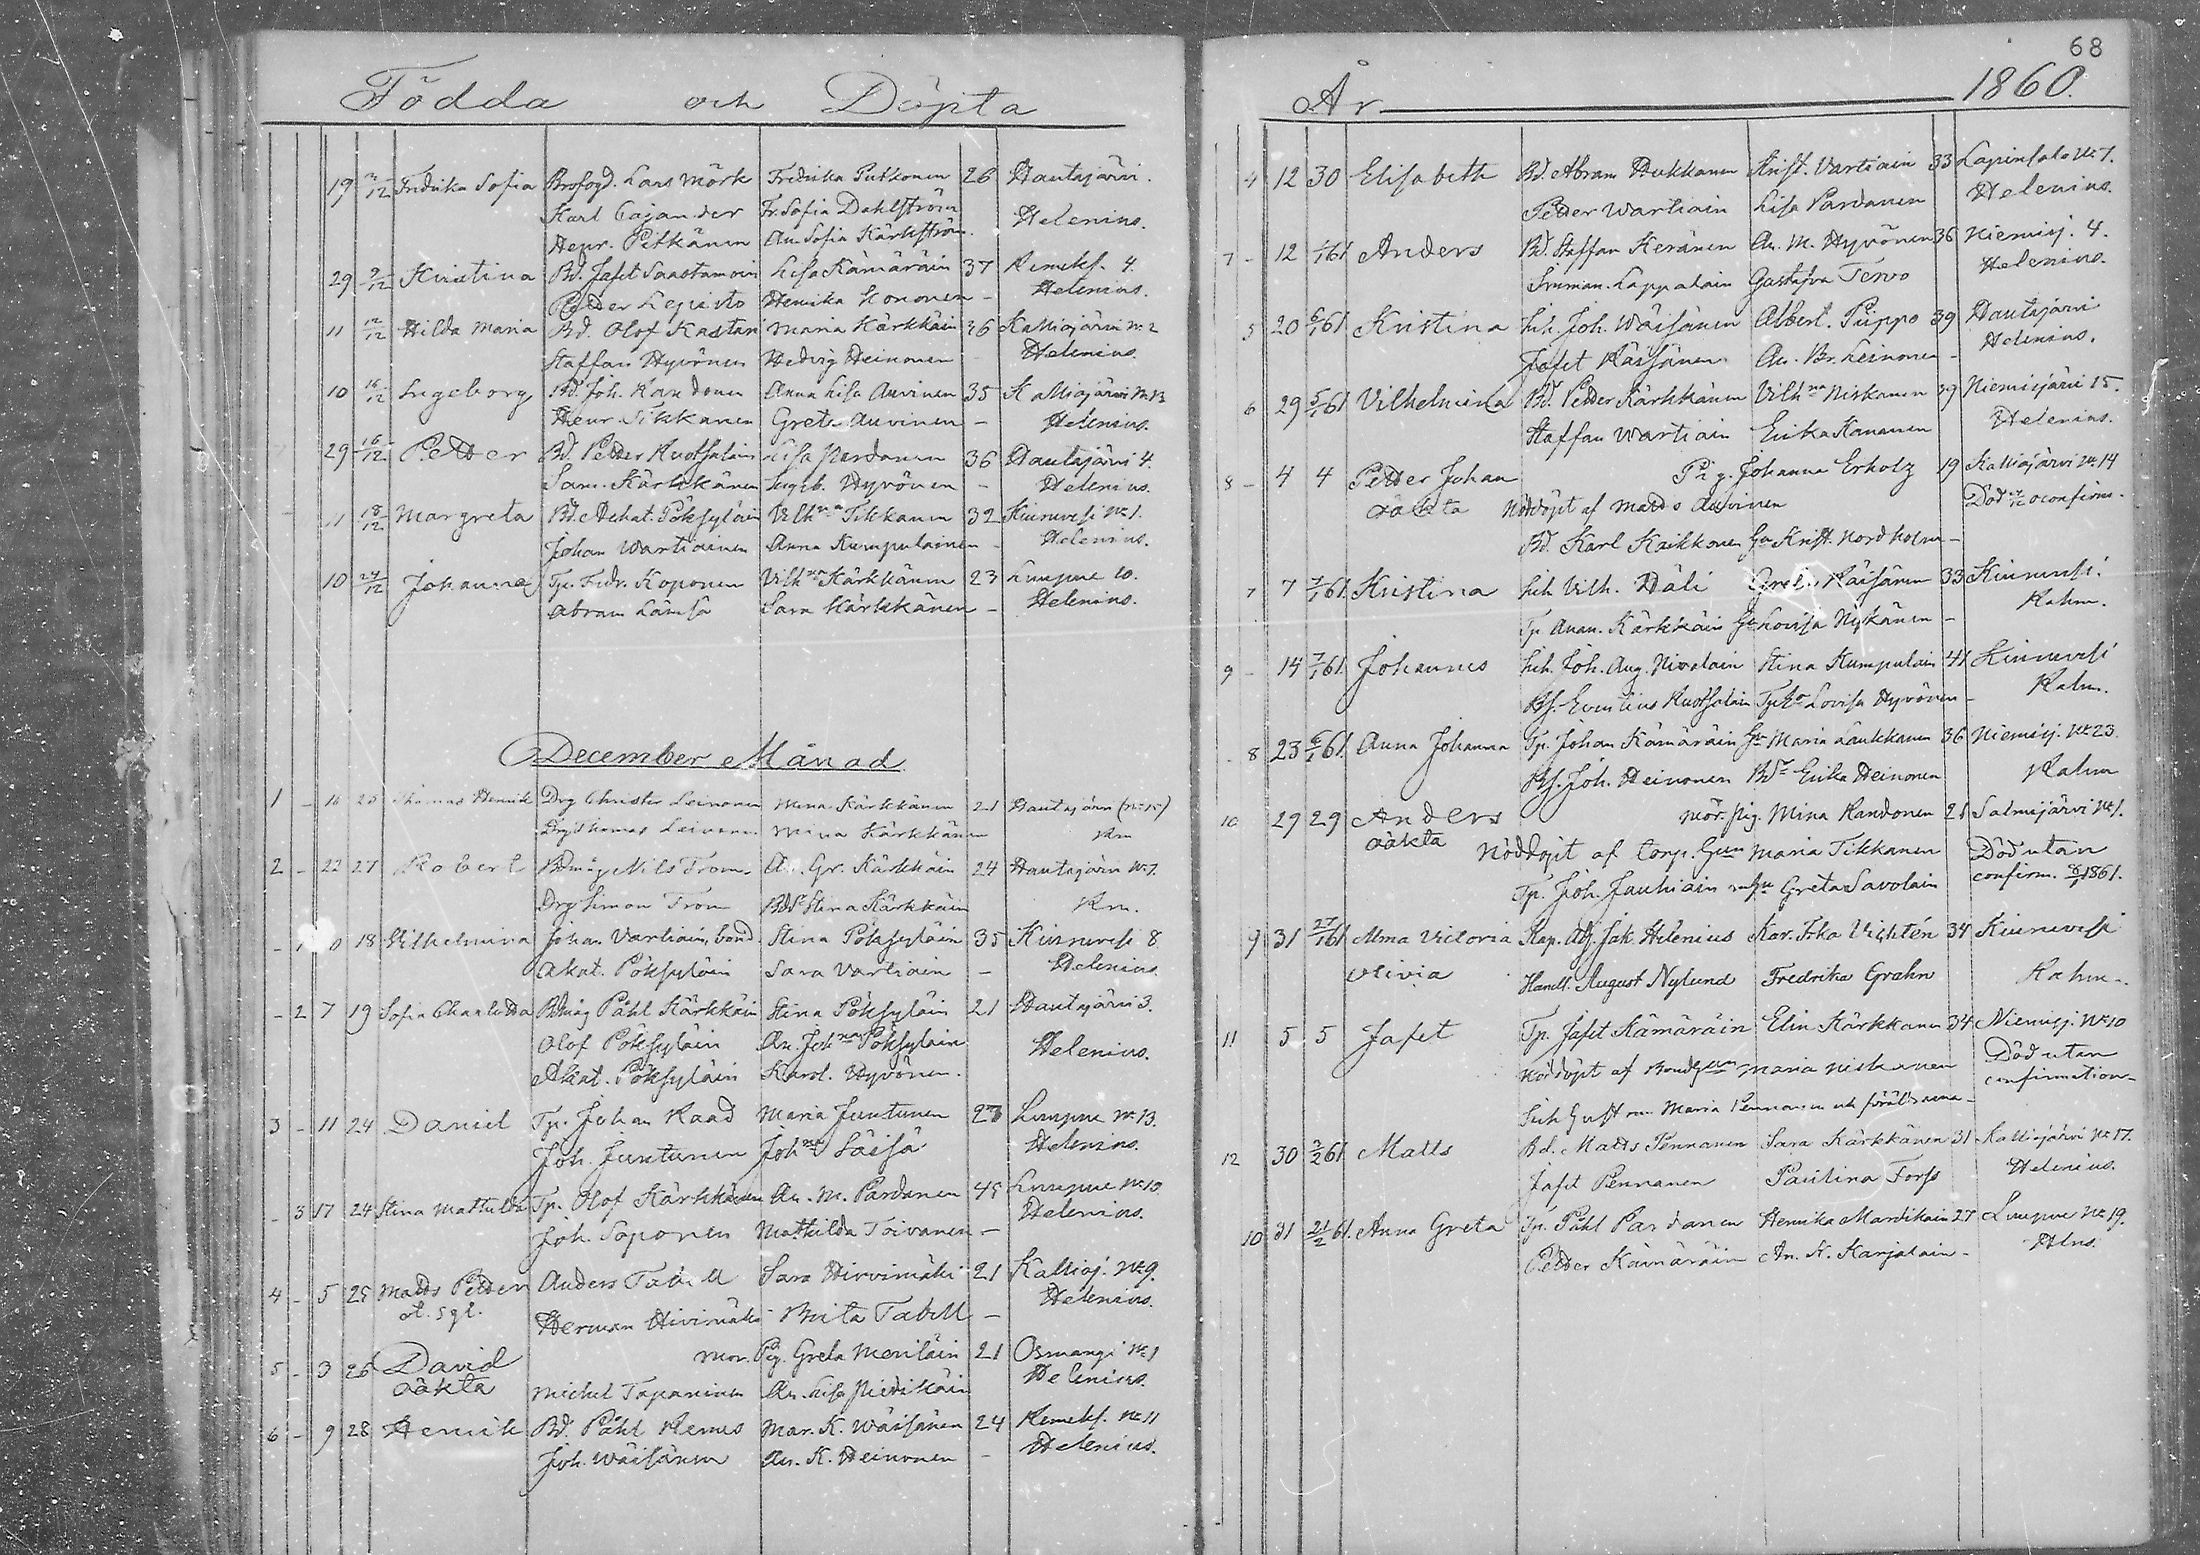 Födda och Döpta
19 2/12 Fredrika Sofia Brofogd. Lars Mörk Fredrika Putkonen 26 Hautajärvi.
Karl Cajander Fr. Sofia Dahlström Helenius.
Henr. Pitkänen An. Sofia Kärkström
29 9/12 Kristina Bd. Jafet Saastamoin Lisa Kämäräin 37 Remeks. 4.
Petter Lepistö Henrika Kononen - Helenius.
11 12/12 Hilda Maria Bd. Olof Kastari Maria Kärkkäin 36 Kalliojärvi № 2
Staffan Hyvönen Hedvig Heinonen - Helenius.
10 16/12 Ingeborg Bd. Joh. Kandonen Anna Lisa Auvinen 35 Kalliojärvi № 13
Henr. Tikkanen Greta Auvinen - Helenius.
29 16/12 Petter Bd. Petter Ruotsalain Lisa Pardanen 36 Hautajärvi 4.
Sam. Kärkkänen Ingeb. Hyvönen - Helenius.
11 18/12 Margreta Bd. Akat. Pöksyläin Vilhna Tikkanen 32 Kiuruvesi № 1.
Johan Wartiainen Anna Kumpulainen - Helenius.
10 24/12 Johanna Tp. Fredr. Koponen Vilhna Kärkkänen 23 Luupue 10.
Abram Lämsä Sara Kärkkänen - Helenius.
December Månad.
1 - 16 25 Thomas Henrik Drg Christer Leinonen Mina Kärkkänen 21 Hautajärvi (№ 15)
Drg Thomas Leinonen Mina Kärkkänen Rm
2 - 22 27 Robert Bdmåg Nils Trom An. Gr. Kärkkäin 24 Hautajärvi № 7.
Drg Simon Trom Bdsr Stina Kärkkäin Rm.
- 1 10 18 Vilhelmina Johan Vartiain, bond. Stina Pöksyläin 35 Kiuruvesi 8.
Akat. Pöksyläin Sara Vartiain - Helenius.
- 2 7 19 Sofia Charlotta Bdmåg Påhl Kärkkäin Stina Pöksyläin 21 Hautajärvi 3.
Olof Pöksyläin An. Johna Pöksyläin Helenius.
Akat. Pöksyläin Karol. Hyvönen.
3 - 11 24 Daniel Tp. Johan Raad Maria Juntunen 23 Luupue № 13.
Joh. Juntunen Johna Säisä Helenius.
- 3 17 24 Stina Mathilda Tp. Olof Kärkkänen An. M. Pardanen 45 Luupue № 10.
Joh. Soponen Mathilda Toivanen - Helenius.
4 - 5 25 Matts Petter Anders Tabell Sara Hirvimäki 21 Kallioj. № 9.
Herman Hirvimäki Brita Tabell - Helenius.
5 - 3 26 David Mor. Pig. Greta Meriläin 21 Osmangi № 1
oäkta Michel Tapaninen An. Lisa Piedikäin Helenius.
6 - 9 28 Henrik Bd. Påhl Remes Mar. K. Wäisänen 24 Remeks. № 11
Joh. Wäisänen An. K. Heinonen - Helenius.
68
År 1860.
4 12 30 Elisabeth Bd. Abram Hukkanen Krist. Vartiain 33 Lapinsalo № 7.
Petter Wartiain Lisa Pardanen Helenius.
7 - 12 1/1 61 Anders Bd. Staffan Keränen An. M. Hyvönen 36 Niemisj. 4.
Lappalain Gustafva Tervo Helenius.
5 20 6/1 61 Kristina Inh. Joh. Wäisänen Albert. Piippo 39 Hautajärvi
Jafet Räisänen An. Br. Leinonen - Helenius.
6 29 5/1 61 Vilhelmina Bd. Petter Kärkkänen Vilhna Niskanen 39 Niemisjärvi 15.
Staffan Wartiain Erika Kananen Helenius.
8 - 4 4 Petter Johan Pig. Johanna Erholz 19 Kalliojärvi № 14
oäkta Nöddöpt af Matts Auvinen Död oconfirm.
Bd. Karl Kaikkonen Gu Krist. Nordholm -
7 7 7/1 61 Kristina Inh Vilh. Däli Greta Räisänen 33 Kiuruvesi.
Tp Anan. Kärkkäin Gu Lovisa Nykänen - Rahm.
9 - 14 7/1 61 Johannes Inh. Joh. Aug. Nivalain Stina Kumpulain 41 Kiuruvesi
Bs. Evenlius Ruotsalain Lovisa Hyvönen - Rahm.
8 23 6/1 61 Anna Johanna Tp. Johan Kämäräin Gu Maria Laukkanen 36 Niemisj. № 23.
Bs. Joh. Heinonen Bdr Erika Heinonen Rahm
10 29 29 Anders Mor. pig. Mina Kandonen 21 Salmijärvi № 1.
oäkta Nöddöpt af Torp. Gun Maria Tikkanen Död utan
Tp. Joh. Jauhiain Greta Savolain confirm. 1861.
9 31 27/1 61 Alma Victoria Kap. Adj. Jak. Helenius Kar. Frka Vichtén 34 Kiuruvesi
Olivia Handl. August Nylund Fredrika Grahn Rahm.
11 5 5 Jafet Tp. Jafet Kämäräin Elin Kärkkanen 34 Niemisj. № 10
Nöddöpt af Bondgun Maria Niskanen Död utan
confirmation
Inh Gust Maria Pennanen och föräldrarna -
12 30 2/2 61 Matts Bd. Matts Pennanen Sara Kärkkänen 31 Kalliojärvi № 17.
Jafet Pennanen Paulina Forss Helenius.
10 31 21/2 61. Anna Greta Tp. Påhl Pardanen Henrika Mardikain 27 Luupue № 19.
Petter Kämäräin An. K. Karjalain - Hlns.